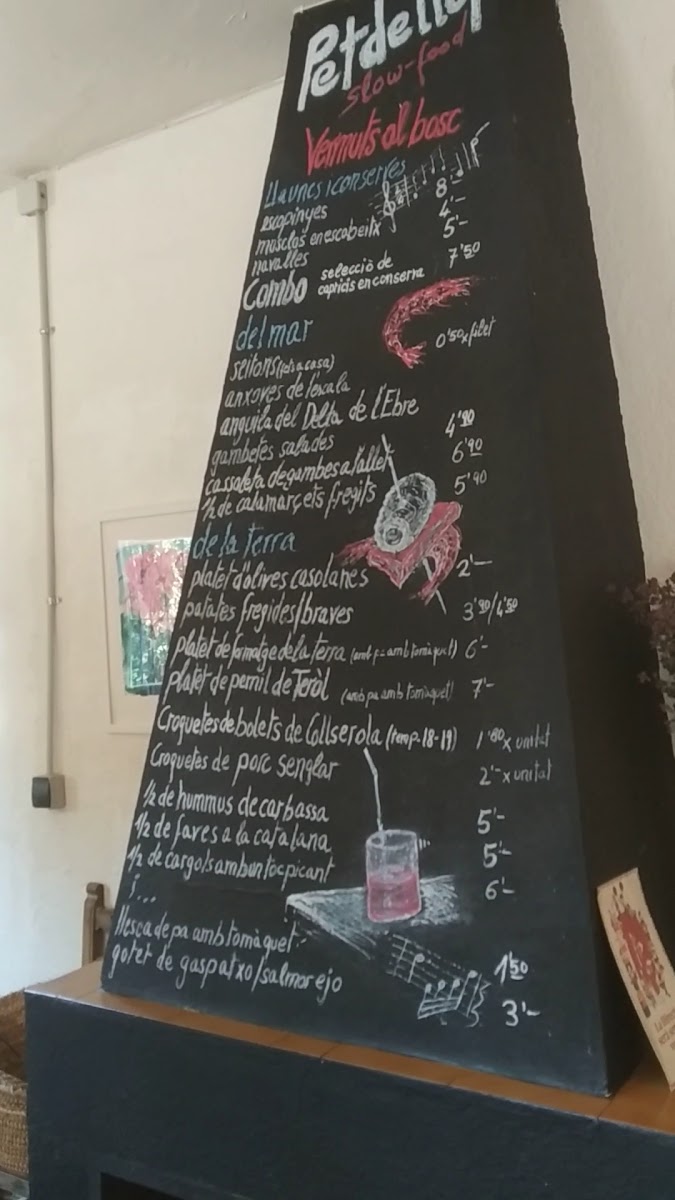 Petdellop
slow-food
Vermuts al bosc
llaunes i conserves
escopinyes 8'-
musclos en escabeitx 4'-
navalles 5'-
Combo selecció de capricis en conserva 7'50
del mar
seitons (fets a casa) 0'50 x filet
anxoves de l'escala
anguila del Delta de l'Ebre
gambetes salades 4'90
cassoleta de gambes a l'allet 6'90
1/2 de calamarçets fregits 5'90
de la terra
platet d'olives casolanes 2'-
patates fregides/braves 3'90/4'50
platet de formatge de la terra (amb pa amb tomàquet) 6'-
platet de pernil de Teròl (amb pa amb tomàquet) 7'-
Croquetes de bolets de Collserola (temp-18-19) 1'80 x unitat
Croquetes de porc senglar 2'- x unitat
1/2 de hummus de carbassa 5'-
1/2 de faves a la catalana 5'-
1/2 de cargols amb un toc picant 6'-
i...
llesca de pa amb tomàquet 1'50
gotet de gaspatxo/salmorejo 3'-